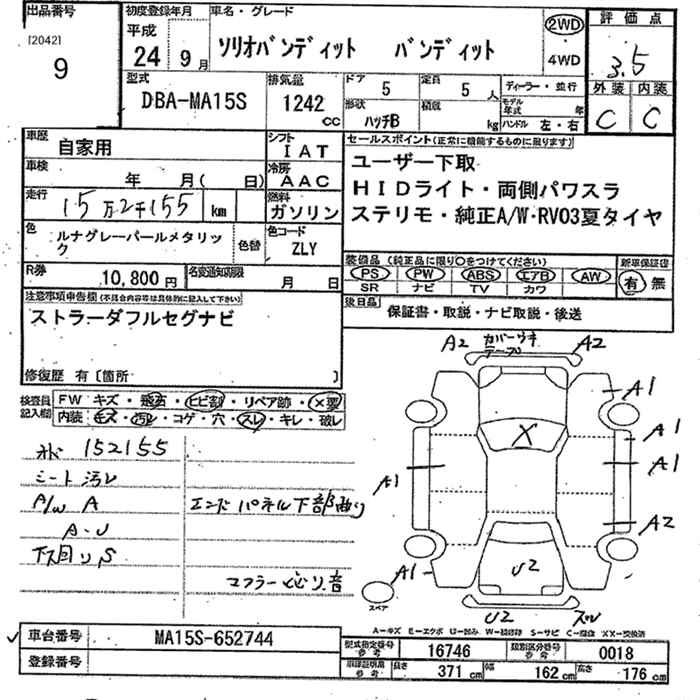 出品番号 初度登録年月 車名・グレード 評価点
[2042] 平成 2WD
9 24 9月 ソリオバンディット バンディット 4WD 3.5
型式 排気量 ドア 5 定員 5人 ディーラー・並行 外装 内装
DBA-MA15S 1242cc 形状 ハッチB 積載 kg モデル年式 年 C C
ハンドル 左・右
車歴 自家用 シフト IAT セールスポイント(正常に機能するものに限ります)
車検 年 月( 日) 冷房 AAC ユーザー下取
走行 15万2千155 km 燃料 ガソリン HIDライト・両側パワスラ
ステリモ・純正A/W・RV03夏タイヤ
色 ルナグレーパールメタリック 色替 色コード ZLY
装備品(純正品に限り○をつけてください) 新車保証書
R券 10,800円 名変通知期限 月 日 PS PW ABS エアB AW 有 無
SR ナビ TV カワ
注意事項申告欄(不具合内容等は具体的に記入して下さい) 後日品 保証書・取説・ナビ取説・後送
ストラーダフルセグナビ
修復歴 有〔箇所 〕
検査員記入欄 FW キズ・飛石・ヒビ割・リペア跡・X要
内装 キズ・汚レ・コゲ・穴・スレ・キレ・破レ
A2 カバーウキ A2
テープ
A1
X A1
A1 A1
A2
A1 U2
スペア U2 スレ
152155
シート汚レ
A/W A
エンドパネル下部曲り
A・U
下回りS
マフラー 音
A-キズ E-エクボ U-凹み W-補修跡 S-サビ C-腐食 XX-交換済
車台番号 MA15S-652744 型式指定番号 参考 16746 類別区分番号 参考 0018
登録番号 車検証明書 参考 長さ 371cm 幅 162cm 高さ 176cm